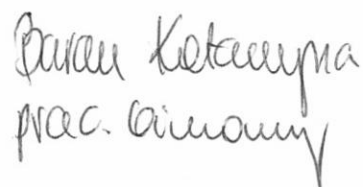 Baran Katarzyna
prac. umowny